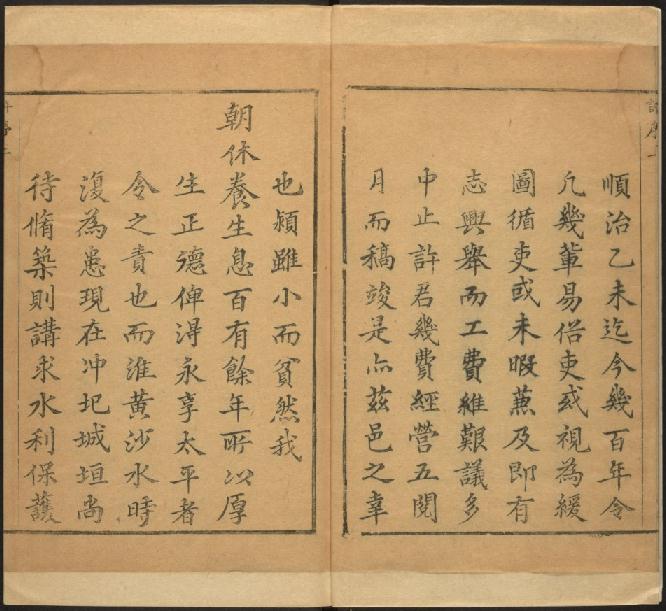 順治乙未迄今幾百年令
凡幾輩易俗吏或視為緩
圖循吏或未暇蒹及即有
志興舉而工費維艱議多
中止許君幾費經營五閱
月而稿竣是亦茲邑之幸
也潁雖小而貧然我
朝休養生息百有餘年所以厚
生正德俾淂永享太平者
令之責也而淮黃沙水時
復為患現在冲圮城垣尚
待脩築則講求水利保護